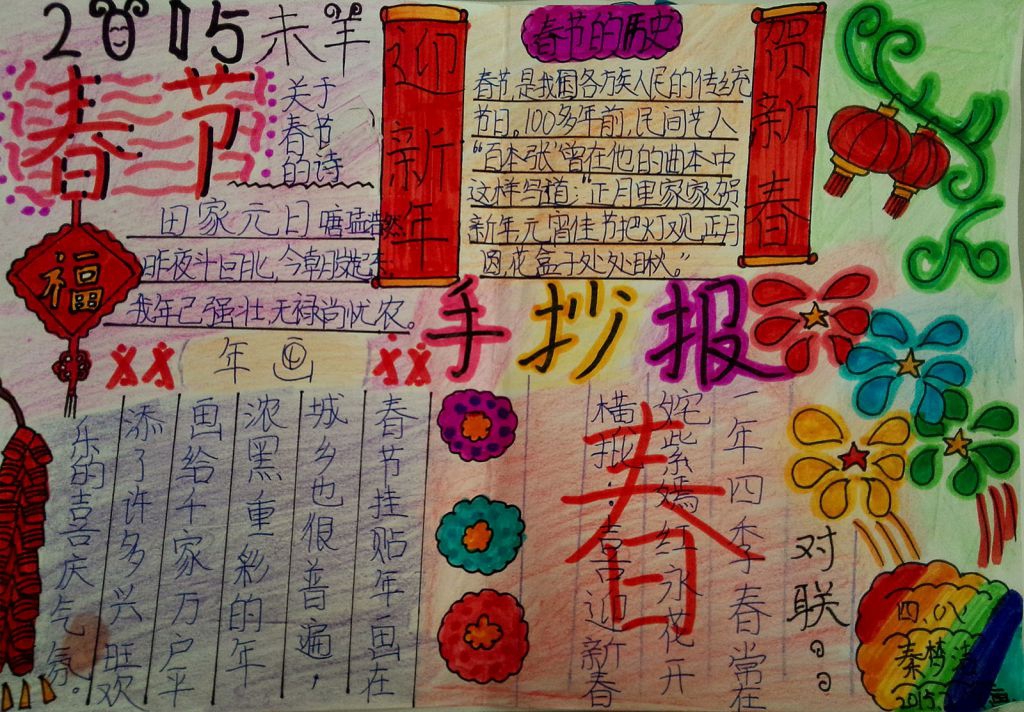 2015未羊
春节
关于
春节
的诗
田家元日 唐孟浩然
昨夜斗回北,今朝岁起东
我年已强壮,无禄尚忧农。
福
迎新年
春节的历史
春节,是我国各方族人民的传统
节日。100多年前,民间艺人
“百本张”曾在他的曲本中
这样写道:“正月里家家贺
新年元宵佳节把灯观,正月
圆,花盒子处处瞅。”
贺新春
手抄报
年画
春节挂贴年画在
城乡也很普遍,
浓黑重彩的年
画给千家万户平
添了许多兴旺欢
乐的喜庆气氛。
对联
一年四季春常在
姹紫嫣红永花开
横批:吉庆迎新春
春
四.八
秦梦
2015.